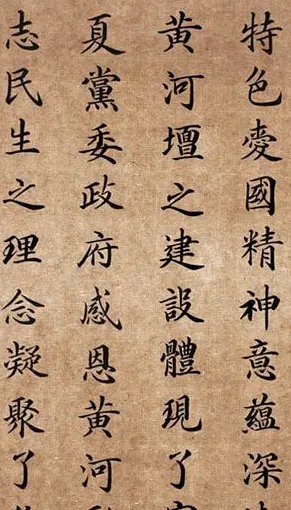 特色爱國精神意蘊深
黃河壇之建設體現了
夏黨委政府感恩黃河
志民生之理念凝聚了